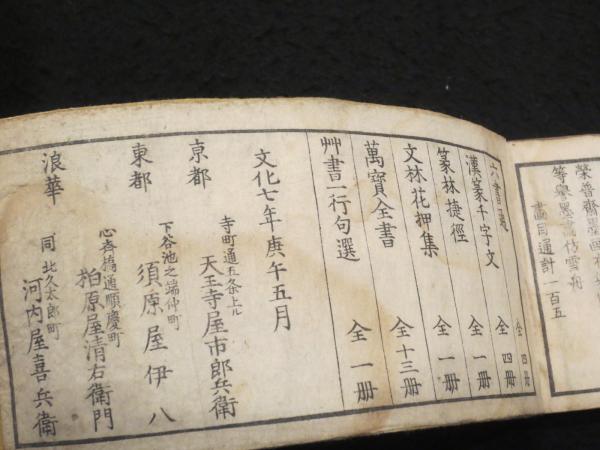 榮普齋墨画
等譽墨画仿雪舟
畫目通計一百五
六書通 全四册
漢篆千字文 全四册
篆林捷徑 全一册
文林花押集 全一册
萬寳全書 全十三册
艸書一行句選 全一册
文化七年庚午五月
京都 寺町通五条上ル 天王寺屋市郎兵衛
東都 下谷池之端仲町 須原屋伊八
浪華 心斉橋通順慶町 柏原屋清右衛門
同 北久太郎町 河内屋喜兵衛